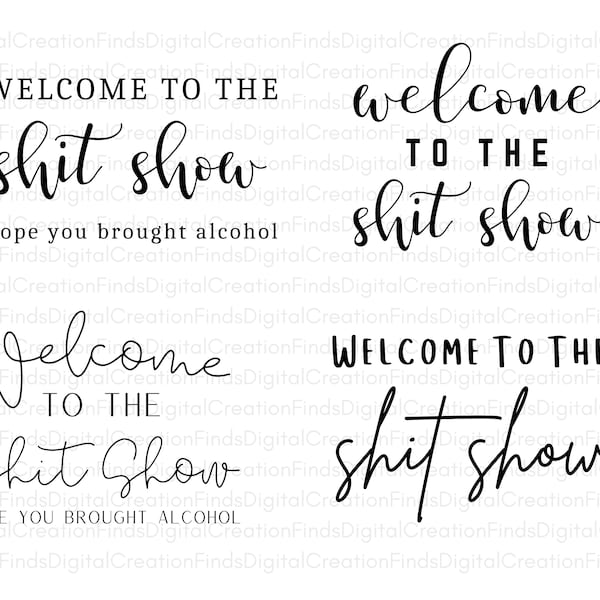 WELCOME TO THE
shit show
ope you brought alcohol
welcome
TO THE
shit show
Welcome
TO THE
Shit Show
E YOU BROUGHT ALCOHOL
WELCOME TO THE
shit show
DigitalCreationFindsDigitalCreationFindsDigitalCreationFinds